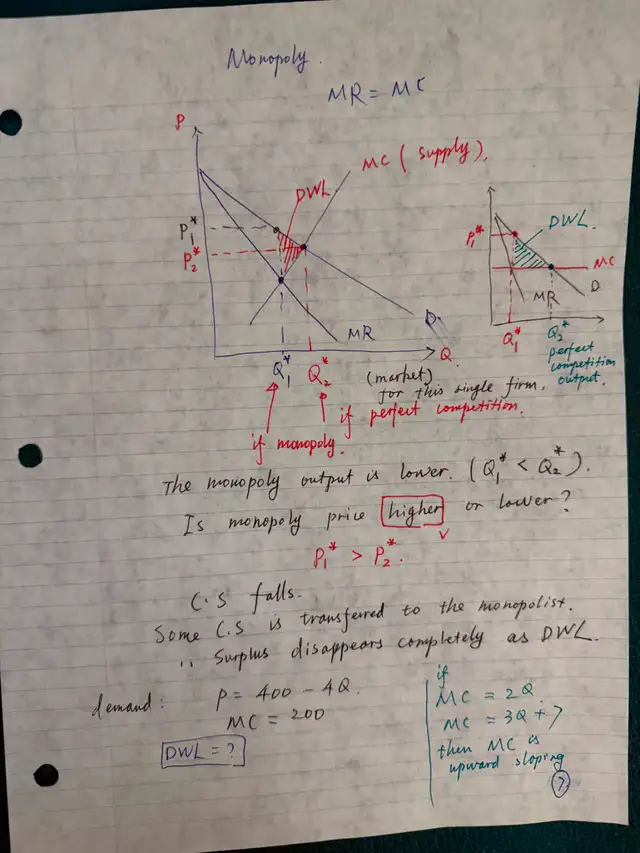 Monopoly.
MR = MC
P
MC (Supply).
DWL
P₁*
P₂*
MR
D
Q.
Q₁*
Q₂*
(market)
for this single firm.
if perfect competition.
if monopoly.
DWL.
P₁*
MC
MR
D
Q₁*
Q₂*
perfect
competition
output.
The monopoly output is lower. (Q₁* < Q₂*).
Is monopoly price higher or lower?
P₁* > P₂*.
C.S falls.
Some C.S is transferred to the monopolist.
,, Surplus disappears completely as DWL.
demand: P = 400 - 4Q.
MC = 200
DWL = ?
if
MC = 2Q.
MC = 3Q + 7
then MC is
upward sloping
7